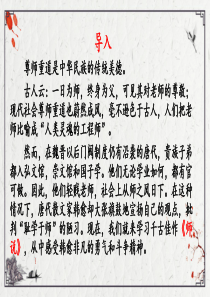 导入
尊师重道是中华民族的传统美德。
古人云：一日为师，终身为父，可见其对老师的尊敬；
现代社会尊师重道也蔚然成风，毫不逊色于古人，人们把老
师比喻成“人类灵魂的工程师”。
然而，在魏晋以后门阀制度仍有沿袭的唐代，贵族子弟
都入弘文馆、崇文馆和国子学。他们无论学业如何，都有官
可做。因此，他们轻视老师，社会上从师之风日下。在这种
情况下，唐代散文家韩愈却大张旗鼓地宣扬自己的观点，批
判“耻学于师”的陋习。现在，我们来学习千古佳作《师
说》，从中感受韩愈非凡的勇气和斗争精神。